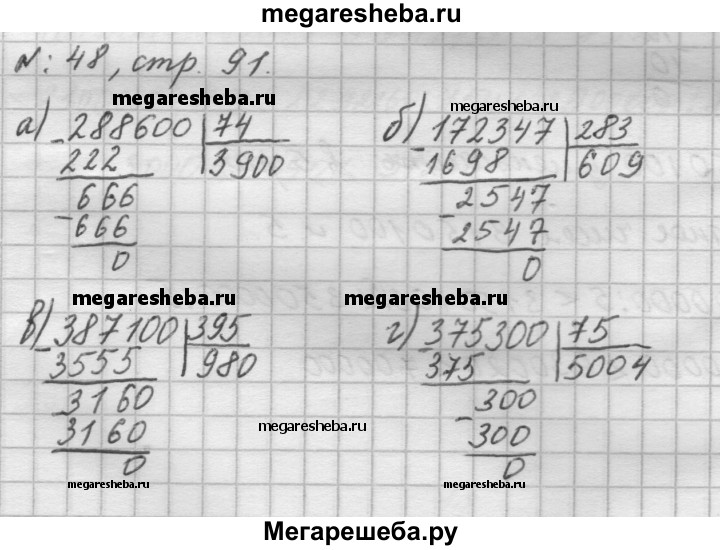 megaresheba.ru
№: 48, стр. 91.
megaresheba.ru
megaresheba.ru
а) 288600 | 74
б) 172347 | 283
- 222 3900
- 1698 609
666
2547
- 666
- 2547
0
0
megaresheba.ru
megaresheba.ru
в) 387100 | 395
г) 375300 | 75
- 3555 980
- 375 5004
3160
300
- 3160
- 300
megaresheba.ru
0
0
megaresheba.ru
megaresheba.ru
Мегарешеба.ру